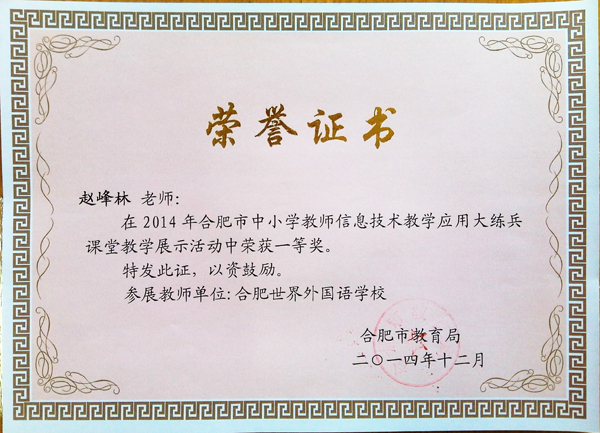 荣誉证书
赵峰林 老师：
在 2014 年合肥市中小学教师信息技术教学应用大练兵
课堂教学展示活动中荣获一等奖。
特发此证，以资鼓励。
参展教师单位：合肥世界外国语学校
合肥市教育局
二〇一四年十二月